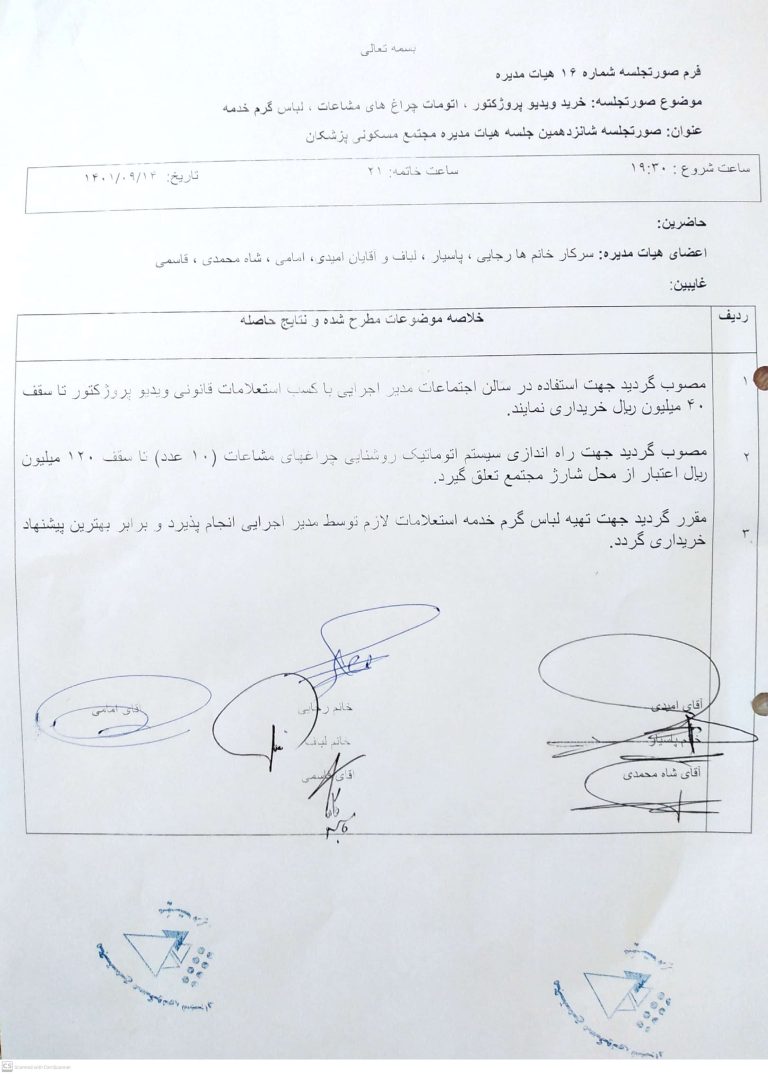 بسمه تعالی
فرم صورتجلسه شماره ۱۶ هیات مدیره
موضوع صورتجلسه: خرید ویدیو پروژکتور ، اتومات چراغ های مشاعات ، لباس گرم خدمه
عنوان: صورتجلسه شانزدهمین جلسه هیات مدیره مجتمع مسکونی پزشکان
ساعت شروع : ۱۹:۳۰ ساعت خاتمه: ۲۱ تاریخ: ۱۴۰۱/۰۹/۱۴
حاضرین:
اعضای هیات مدیره: سرکار خانم ها رجایی ، پاسیار ، لباف و آقایان امیدی، امامی ، شاه محمدی ، قاسمی
غایبین:
ردیف خلاصه موضوعات مطرح شده و نتایج حاصله
۱ مصوب گردید جهت استفاده در سالن اجتماعات مدیر اجرایی با کسب استعلامات قانونی ویدیو پروژکتور تا سقف
۴۰ میلیون ریال خریداری نمایند.
۲ مصوب گردید جهت راه اندازی سیستم اتوماتیک روشنایی چراغهای مشاعات (۱۰ عدد) تا سقف ۱۲۰ میلیون
ریال اعتبار از محل شارژ مجتمع تعلق گیرد.
۳ مقرر گردید جهت تهیه لباس گرم خدمه استعلامات لازم توسط مدیر اجرایی انجام پذیرد و برابر بهترین پیشنهاد
خریداری گردد.
آقای امیدی خانم رجایی آقای امامی
خانم پاسیار خانم لباف
آقای شاه محمدی آقای قاسمی
CS Scanned with CamScanner